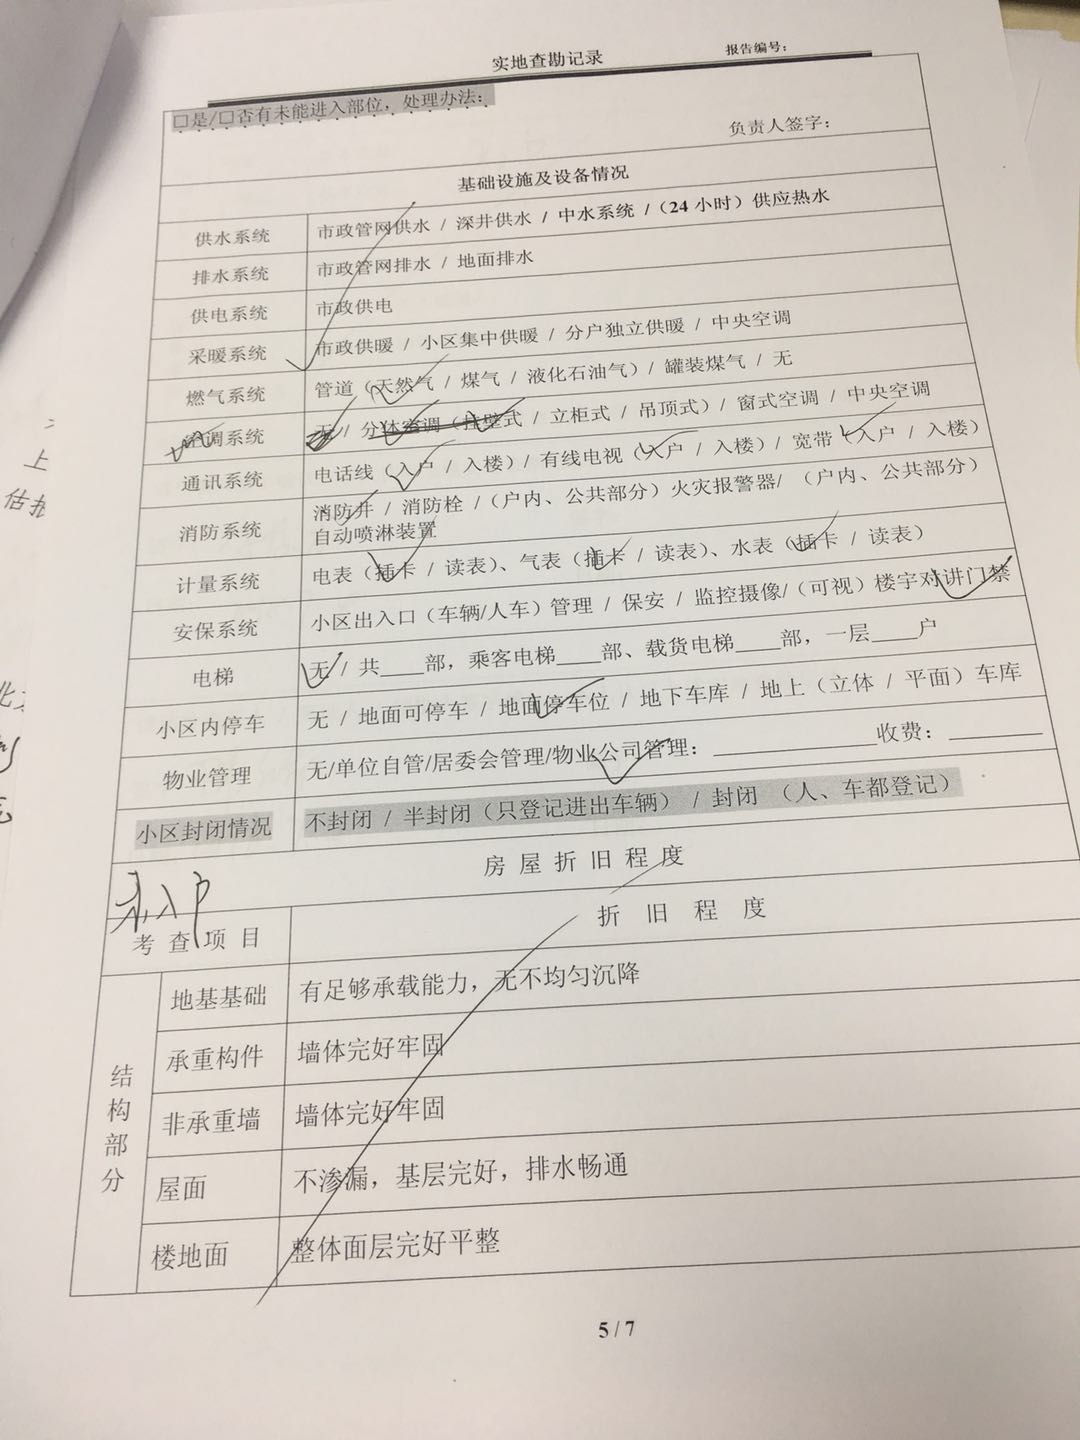 实地查勘记录
报告编号：
□是/□否有未能进入部位，处理办法：
负责人签字：
基础设施及设备情况
供水系统 市政管网供水 / 深井供水 / 中水系统 /（24 小时）供应热水
排水系统 市政管网排水 / 地面排水
供电系统 市政供电
采暖系统 市政供暖 / 小区集中供暖 / 分户独立供暖 / 中央空调
燃气系统 管道（天然气 / 煤气 / 液化石油气）/ 罐装煤气 / 无
空调系统 无 / 分体空调（挂壁式 / 立柜式 / 吊顶式）/ 窗式空调 / 中央空调
通讯系统 电话线（入户 / 入楼）/ 有线电视（入户 / 入楼）/ 宽带（入户 / 入楼）
消防系统 消防井 / 消防栓 /（户内、公共部分）火灾报警器/ （户内、公共部分）
自动喷淋装置
计量系统 电表（插卡 / 读表）、气表（插卡 / 读表）、水表（插卡 / 读表）
安保系统 小区出入口（车辆/人车）管理 / 保安 / 监控摄像/（可视）楼宇对讲门禁
电梯 无 / 共____部，乘客电梯____部、载货电梯____部，一层____户
小区内停车 无 / 地面可停车 / 地面停车位 / 地下车库 / 地上（立体 / 平面）车库
物业管理 无/单位自管/居委会管理/物业公司管理：________________收费：________
小区封闭情况 不封闭 / 半封闭（只登记进出车辆） / 封闭 （人、车都登记）
房 屋 折 旧 程 度
未入户
考 查 项 目 折 旧 程 度
结构部分
地基基础 有足够承载能力，无不均匀沉降
承重构件 墙体完好牢固
非承重墙 墙体完好牢固
屋面 不渗漏，基层完好，排水畅通
楼地面 整体面层完好平整
5 / 7
上
估报